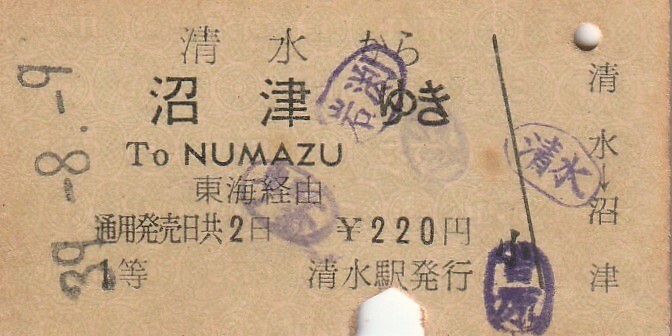 清水から
沼津ゆき
To NUMAZU
東海経由
通用発売日共2日 ¥220円
1等 清水駅発行
39.-8.-9
清水→沼津
小
清水
岩渕
吉原